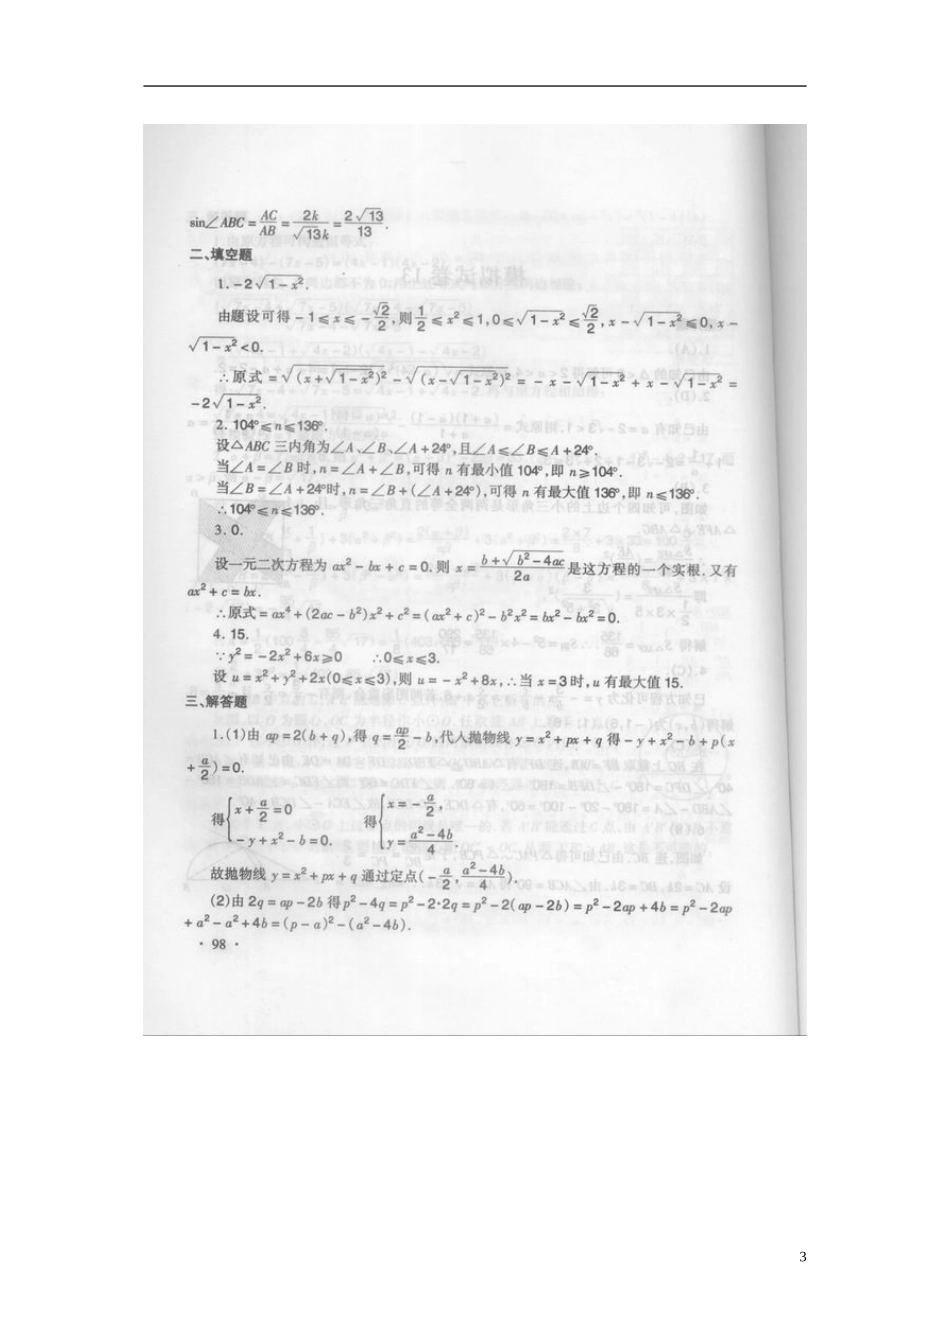 sin∠ABC = AC/AB = 2k/√13k = 2√13/13.
二、填空题
1. －2√(1－x²).
由题设可得－1≤x≤－√2/2,则1/2≤x²≤1,0≤√(1－x²)≤√2/2,x－√(1－x²)≤0,x－
√(1－x²)<0.
∴原式＝√(x+√(1－x²))²－√(x－√(1－x²))²＝－x－√(1－x²)+x－√(1－x²)＝
－2√(1－x²).
2. 104°≤n≤136°.
设△ABC三内角为∠A、∠B、∠A+24°,且∠A≤∠B≤A+24°.
当∠A=∠B时,n=∠A+∠B,可得n有最小值104°,即n≥104°.
当∠B=∠A+24°时,n=∠B+(∠A+24°),可得n有最大值136°,即n≤136°.
∴104°≤n≤136°.
3. 0.
设一元二次方程为ax²－bx+c=0.则x=(b+√(b²－4ac))/2a是这方程的一个实根.又有
ax²+c=bx.
∴原式=ax⁴+(2ac－b²)x²+c²=(ax²+c)²－b²x²=bx²－bx²=0.
4. 15.
∵y²=－2x²+6x≥0 ∴0≤x≤3.
设u=x²+y²+2x(0≤x≤3),则u=－x²+8x,∴当x=3时,u有最大值15.
三、解答题
1.(1)由ap=2(b+q),得q=ap/2－b,代入抛物线y=x²+px+q得－y+x²－b+p(x
+a/2)=0.
得{x+a/2=0 －y+x²－b=0. 得{x=－a/2, y=(a²－4b)/4.
故抛物线y=x²+px+q通过定点(－a/2,(a²－4b)/4).
(2)由2q=ap－2b得p²－4q=p²－2·2q=p²－2(ap－2b)=p²－2ap+4b=p²－2ap
+a²－a²+4b=(p－a)²－(a²－4b).
· 98 ·
3